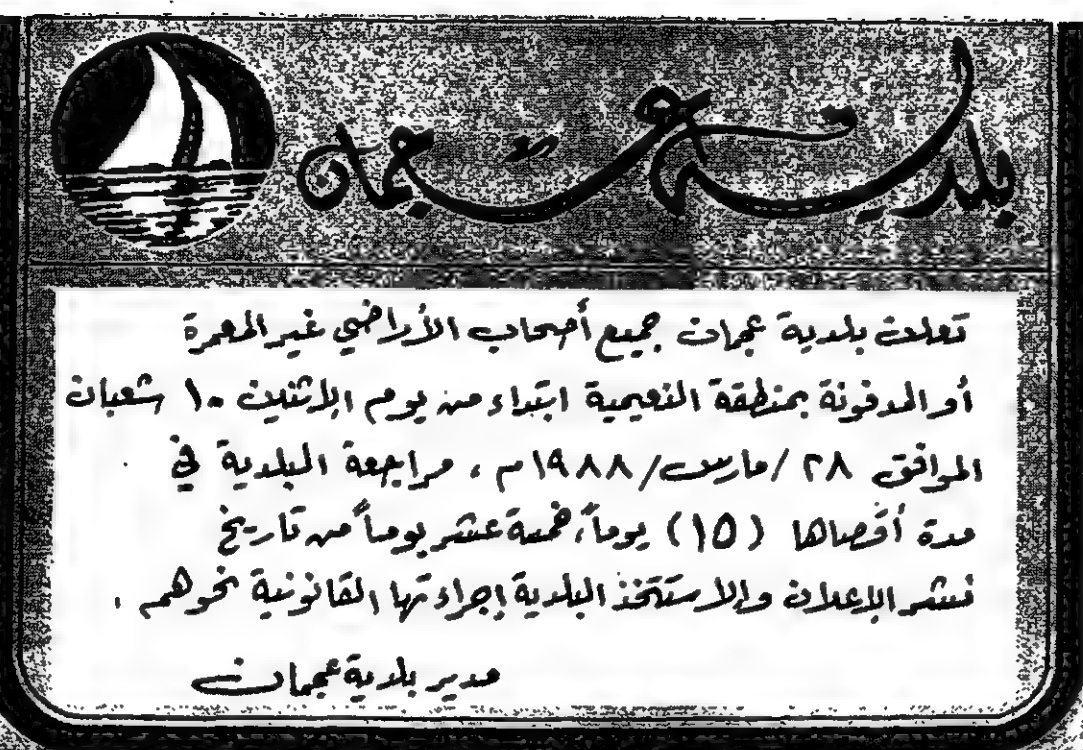 بلدية عجمان
تعلن بلدية عجمان جميع أصحاب الأراضي غير المعمرة
أو المدفونة بمنطقة النعيمية ابتداء من يوم الاثنين ١٠ شعبان
الموافق ٢٨ /مارس/ ١٩٨٨م ، مراجعة البلدية في
مدة أقصاها (١٥) يوماً، خمسة عشر يوماً من تاريخ
نشر الإعلان وإلا ستتخذ البلدية إجراءتها القانونية نحوهم .
مدير بلدية عجمان